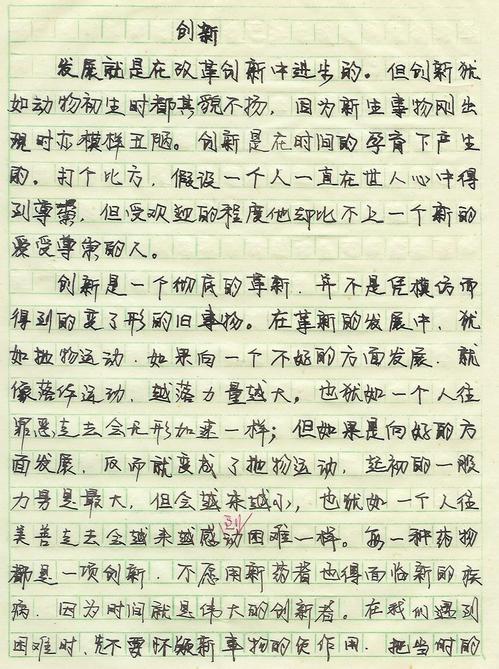 创新
发展就是在改革创新中进步的。但创新犹
如动物初生时都其貌不扬，因为新生事物刚出
现时亦模样丑陋。创新是在时间的孕育下产生
的。打个比方，假设一个人一直在世人心中得
到尊荣，但受欢迎的程度他却比不上一个新的
爱受尊崇的人。
创新是一个彻底的革新，并不是凭模仿而
得到的变了形的旧事物。在革新的发展中，犹
如抛物运动，如果向一个不好的方面发展，就
像落体运动，越落力量越大。也犹如一个人往
罪恶走去会无形加速一样；但如果是向好的方
面发展，反而就变成了抛物运动，起初的一股
力量是最大，但会越来越小，也犹如一个人往
美善走去会越来越感到困难一样。每一种药物
都是一项创新，不愿用新药者也得面临新的疾
病，因为时间就是伟大的创新者。在我们遇到
困难时，先不要怀疑新事物的负作用，把当时的